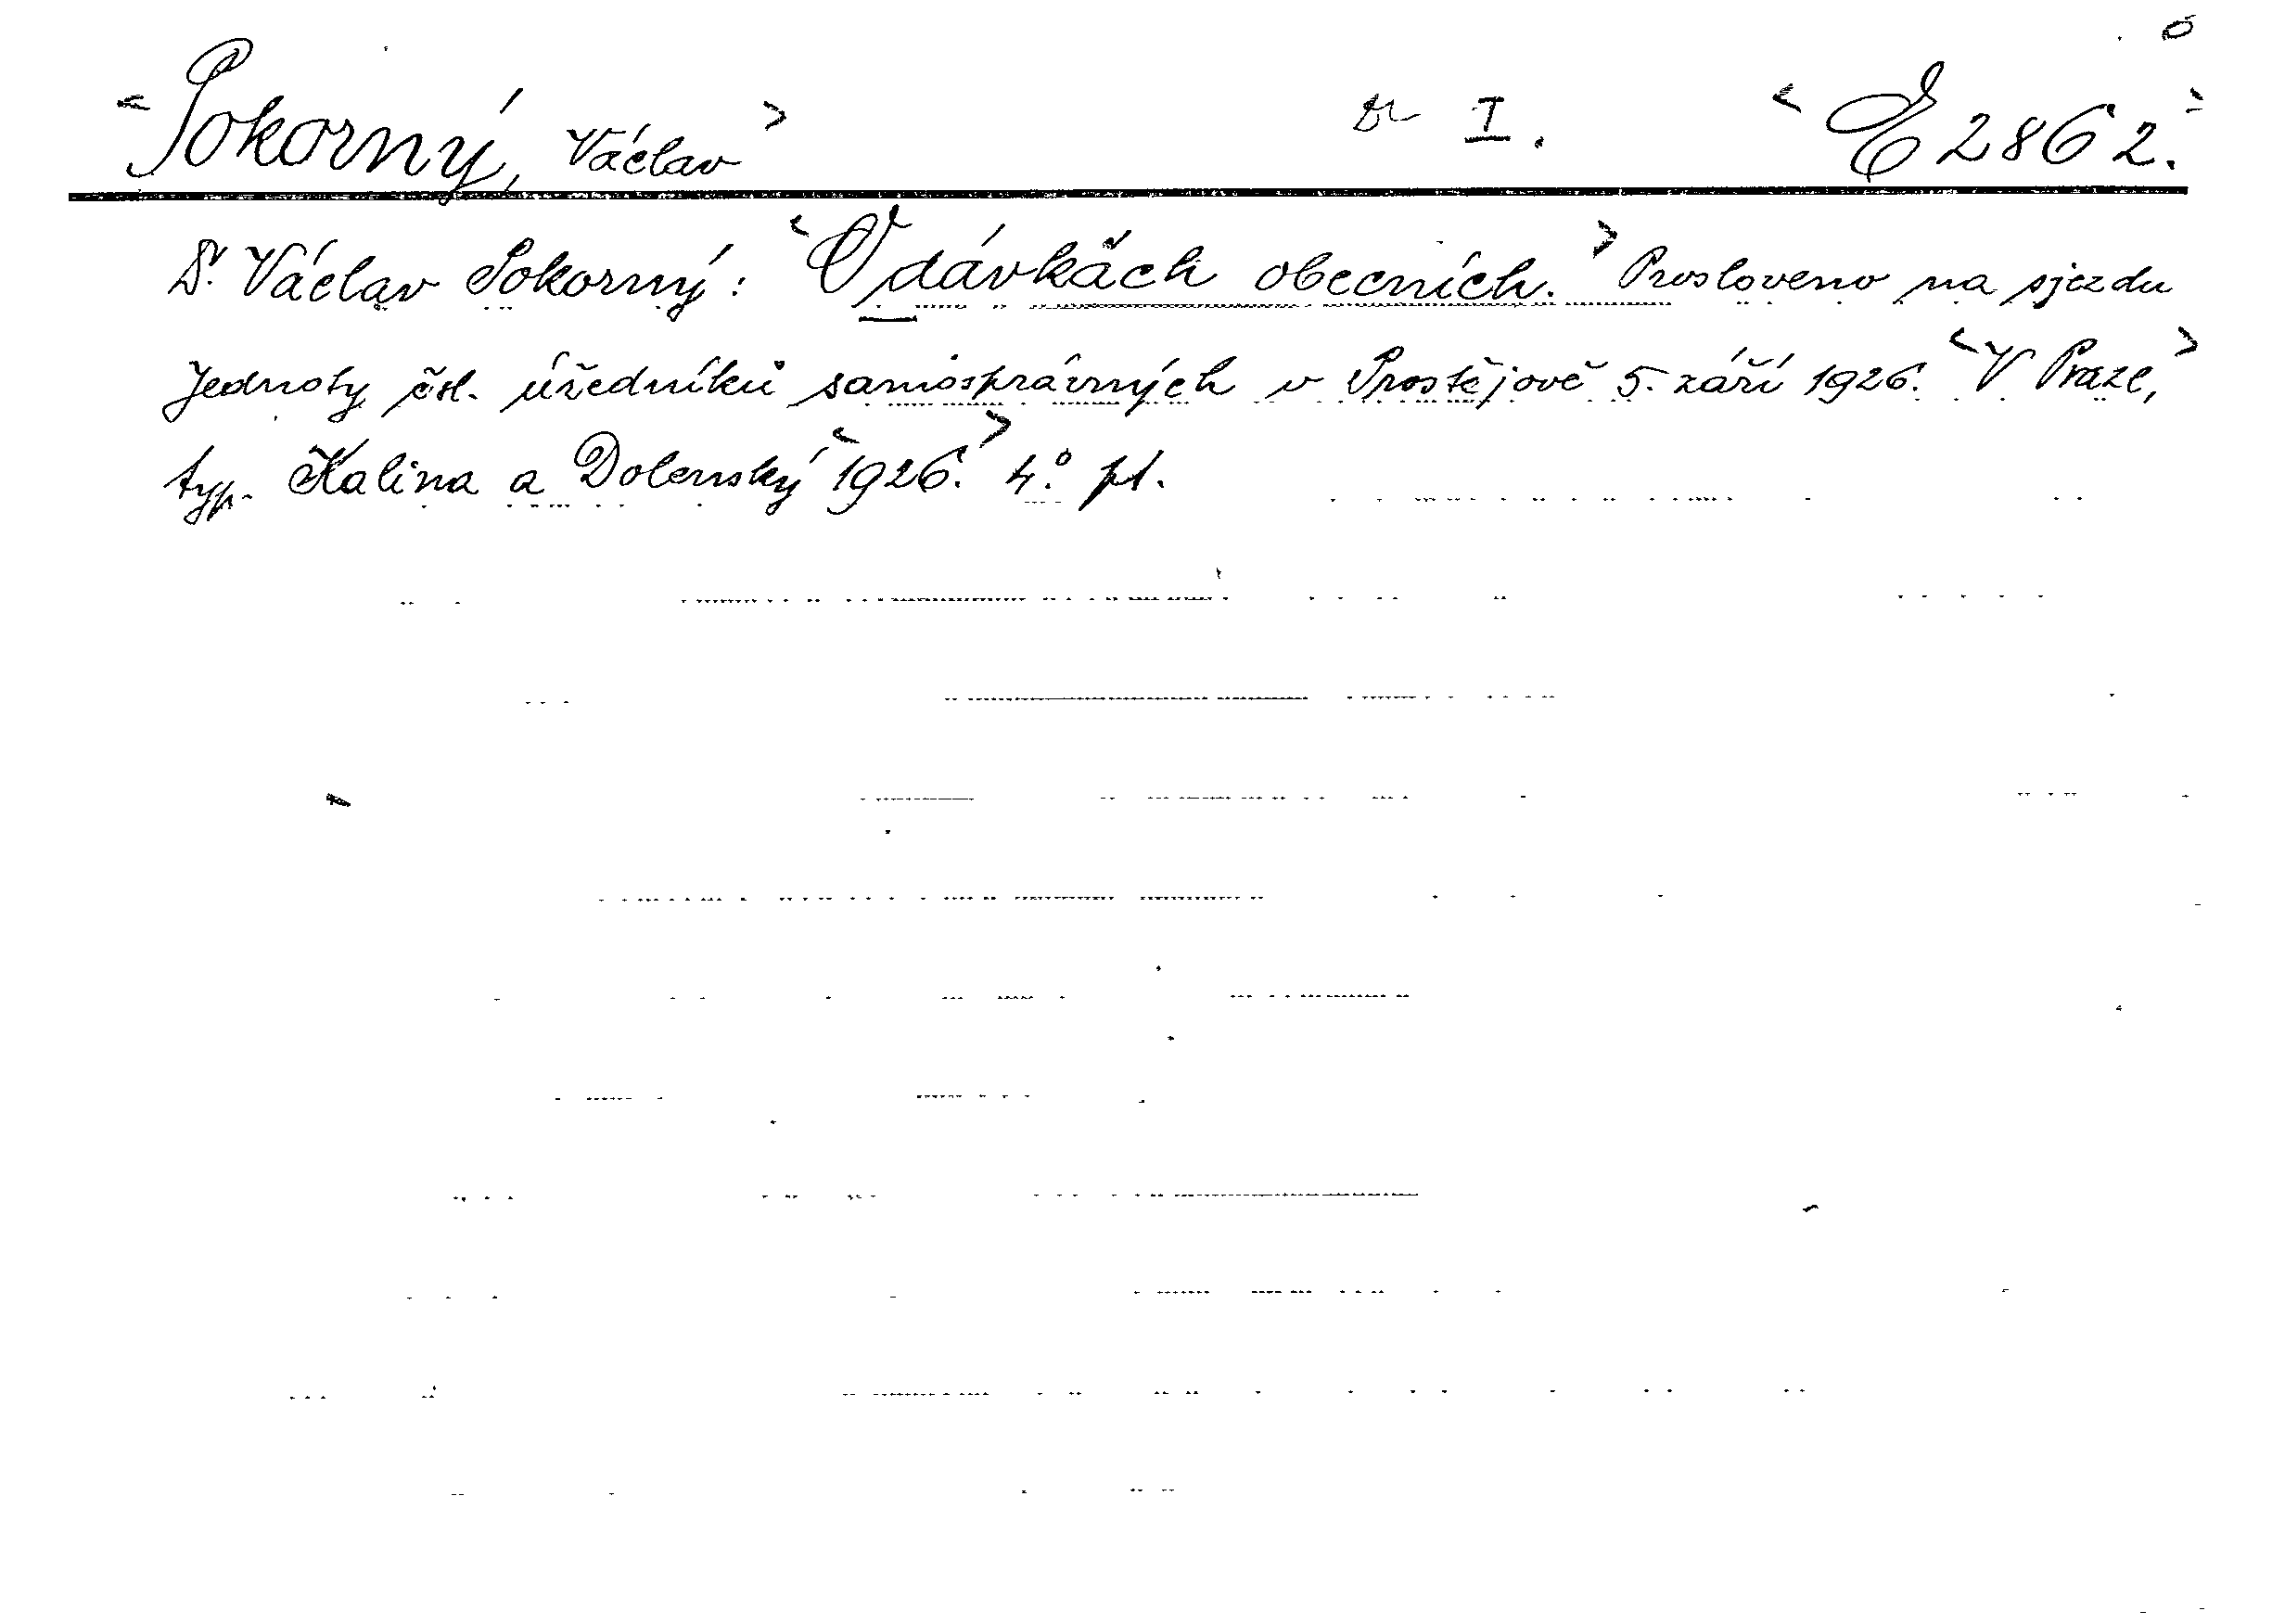 <Pokorný, Václav> I. <E 2862.>
Dr. Václav Pokorný: <O dávkách obecních.> Prosloveno na sjezdu
Jednoty čsl. úředníků samosprávných v Prostějově 5. září 1926. <V Praze,>
typ. Kalina a Dolenský <1926.> 4.° pl.